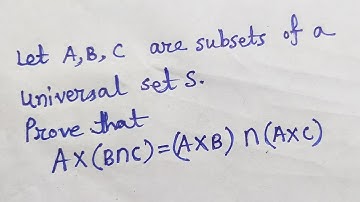 Let A, B, C are subsets of a
Universal set S.
Prove that
A×(B∩C)=(A×B)∩(A×C)